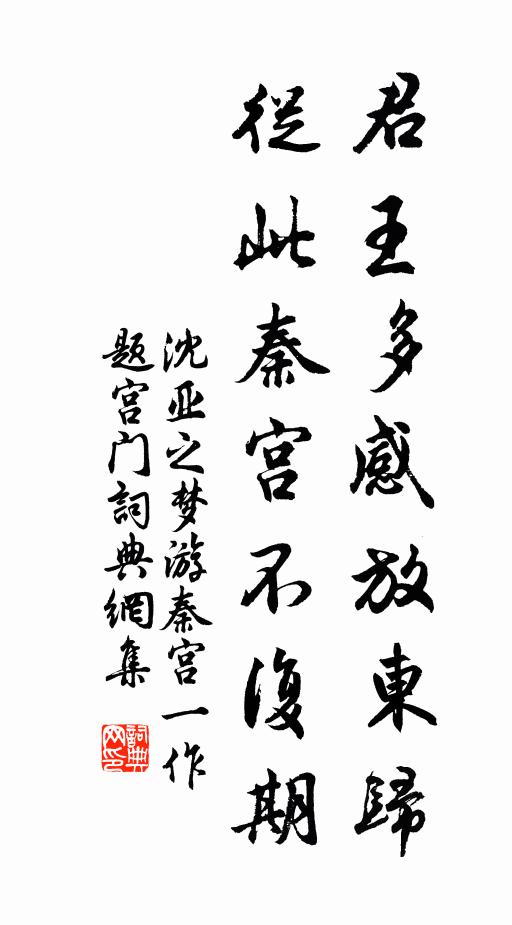 君王多感放東歸
從此秦宮不復期
沈亚之梦游秦宫一作
题宫门詞典網集
詞典网印